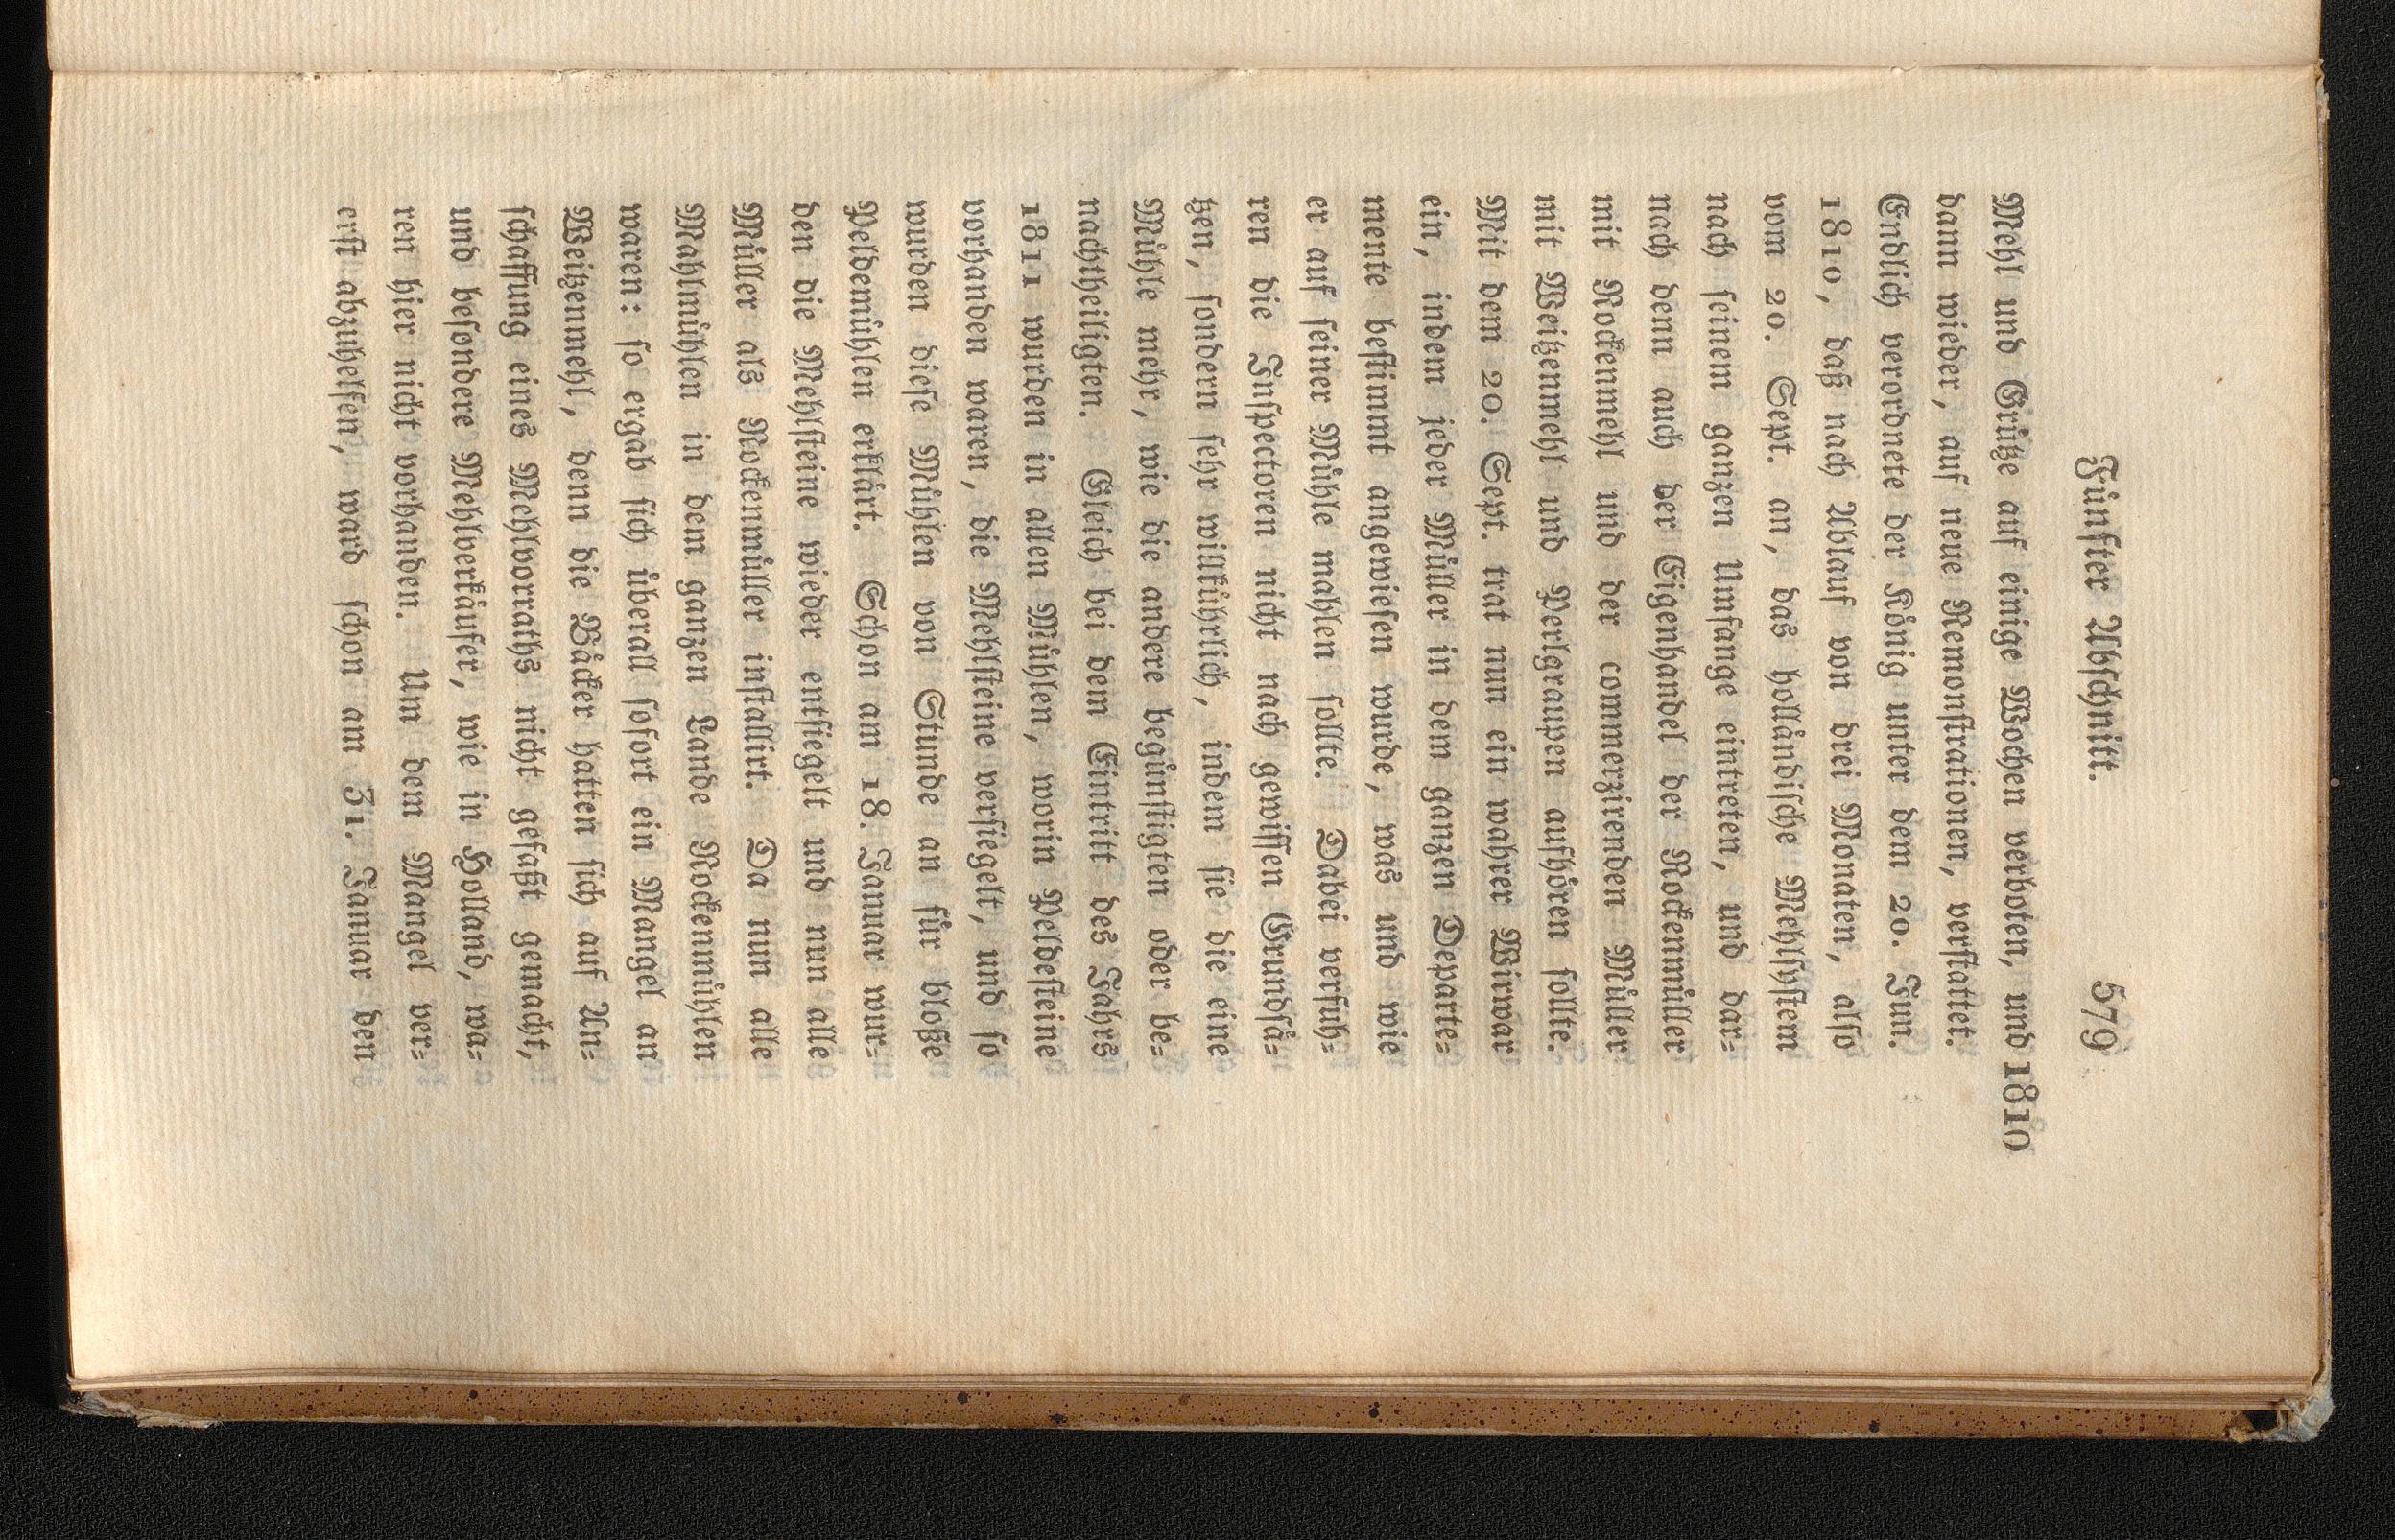 Fünfter Abschnitt. 579
Mehl und Grütze auf einige Wochen verboten, und 1810
dann wieder, auf neue Remonstrationen, verstattet.
Endlich verordnete der König unter dem 20. Jun.
1810, daß nach Ablauf von drei Monaten, also
vom 20. Sept. an, das holländische Mehlsystem
nach seinem ganzen Umfange eintreten, und dar=
nach denn auch der Eigenhandel der Rockenmüller
mit Rockenmehl und der commerzirenden Müller
mit Weitzenmehl und Perlgraupen aufhören sollte.
Mit dem 20. Sept. trat nun ein wahrer Wirwar
ein, indem jeder Müller in dem ganzen Departe=
mente bestimmt angewiesen wurde, was und wie
er auf seiner Mühle mahlen sollte. Dabei verfuh=
ren die Inspectoren nicht nach gewissen Grundsä=
tzen, sondern sehr willkührlich, indem sie die eine
Mühle mehr, wie die andere begünstigten oder be=
nachtheiligten. Gleich bei dem Eintritt des Jahrs
1811 wurden in allen Mühlen, worin Peldesteine
vorhanden waren, die Mehlsteine versiegelt, und so
wurden diese Mühlen von Stunde an für bloße
Peldemühlen erklärt. Schon am 18. Januar wur=
den die Mehlsteine wieder entsiegelt und nun alle
Müller als Rockenmüller installirt. Da nun alle
Mahlmühlen in dem ganzen Lande Rockenmühlen
waren: so ergab sich überall sofort ein Mangel an
Weitzenmehl, denn die Bäcker hatten sich auf An=
schaffung eines Mehlvorraths nicht gefaßt gemacht,
und besondere Mehlverkäufer, wie in Holland, wa=
ren hier nicht vorhanden. Um dem Mangel ver=
erst abzuhelfen, ward schon am 31. Januar den